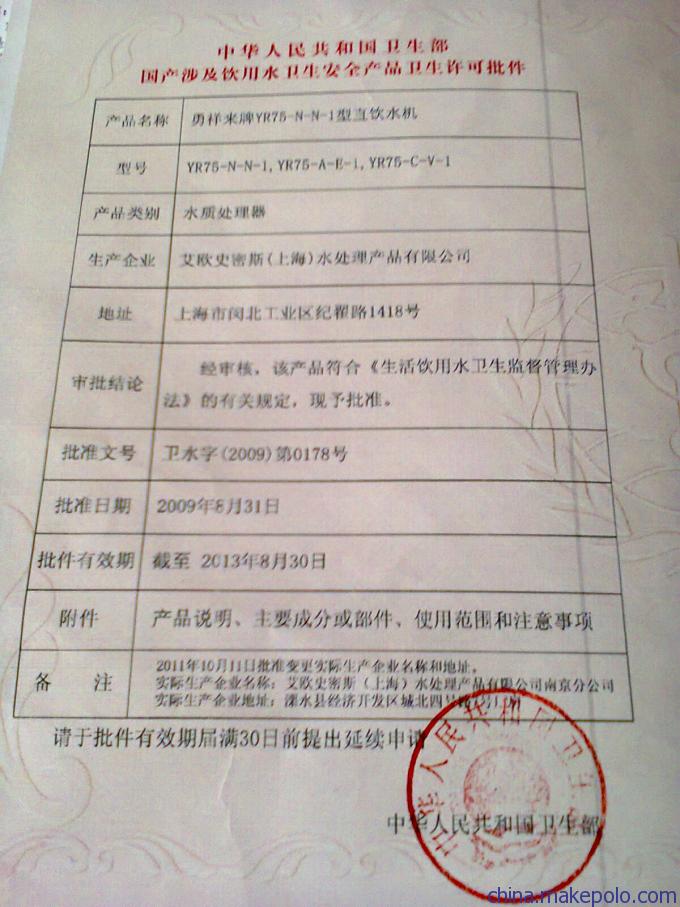 中华人民共和国卫生部
国产涉及饮用水卫生安全产品卫生许可批件
产品名称 勇祥来牌YR75-N-N-1型直饮水机
型号 YR75-N-N-1,YR75-A-E-1,YR75-C-V-1
产品类别 水质处理器
生产企业 艾欧史密斯(上海)水处理产品有限公司
地址 上海市闵北工业区纪翟路1418号
审批结论 经审核，该产品符合《生活饮用水卫生监督管理办
法》的有关规定，现予批准。
批准文号 卫水字(2009)第0178号
批准日期 2009年8月31日
批件有效期 截至 2013年8月30日
附件 产品说明、主要成分或部件、使用范围和注意事项
备 注 2011年10月11日批准变更实际生产企业名称和地址。
实际生产企业名称：艾欧史密斯（上海）水处理产品有限公司南京分公司
实际生产企业地址：溧水县经济开发区城北四号
请于批件有效期届满30日前提出延续申请
中华人民共和国卫生部
中华人民共和国卫生部
china.makepolo.com